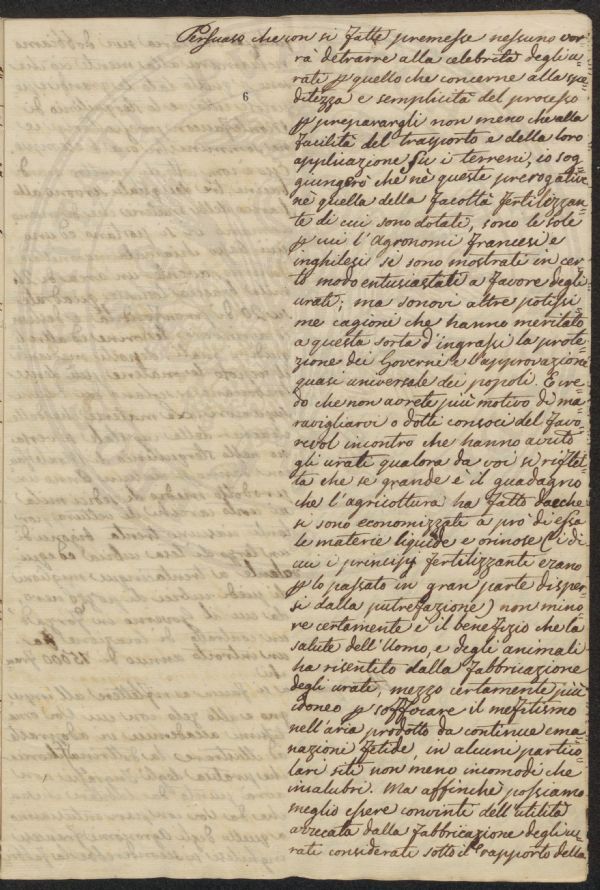 Persuaso che con si fatte premesse nessuno vor=
rà detrarre alla celebrità degli u=
rati p quello che concerne alla spe=
ditezza e semplicità del processo
6
p preparargli non meno che alla
facilità del trasporto e della loro
applicazione su i terreni, io sog=
giungerò che nè queste prerogative
nè quella della facoltà fertilizzan=
te di cui sono dotati, sono le sole
p cui l'Agronomi francesi e
inghilesi si sono mostrati in cer=
to modo entusiastati a favore degli
urati; ma sonovi altre potissi=
me cagioni che hanno meritato
a questa sorta d'ingrassi la prote=
zione dei Governi e l'approvazione
quasi universale dei popoli. Cre=
do che non avrete più motivo di ma=
ravigliarvi o dotti consoci del favo=
revol incontro che hanno avuto
gli urati qualora da voi si riflet=
ta che se grande è il guadagno
che l'agricoltura ha fatto dacche
si sono economizzate a prò di essa
le materie liquide e orinose (i di
cui i principj fertilizzanti erano
p lo passato in gran parte disper=
si dalla putrefazione) non mino=
re certamente è il benefizio che la
salute dell'Uomo, e degli animali
ha risentito dalla fabbricazione
degli urati, mezzo certamente più
idoneo p soffocare il mefitismo
nell'aria prodotto da continue ema=
nazioni fetide, in alcuni partico=
lari siti non meno incomodi che
insalubri. Ma affinchè possiamo
meglio essere convinti dell'utilità
arrecata dalla fabbricazione degli u=
rati considerati sotto il rapporto della